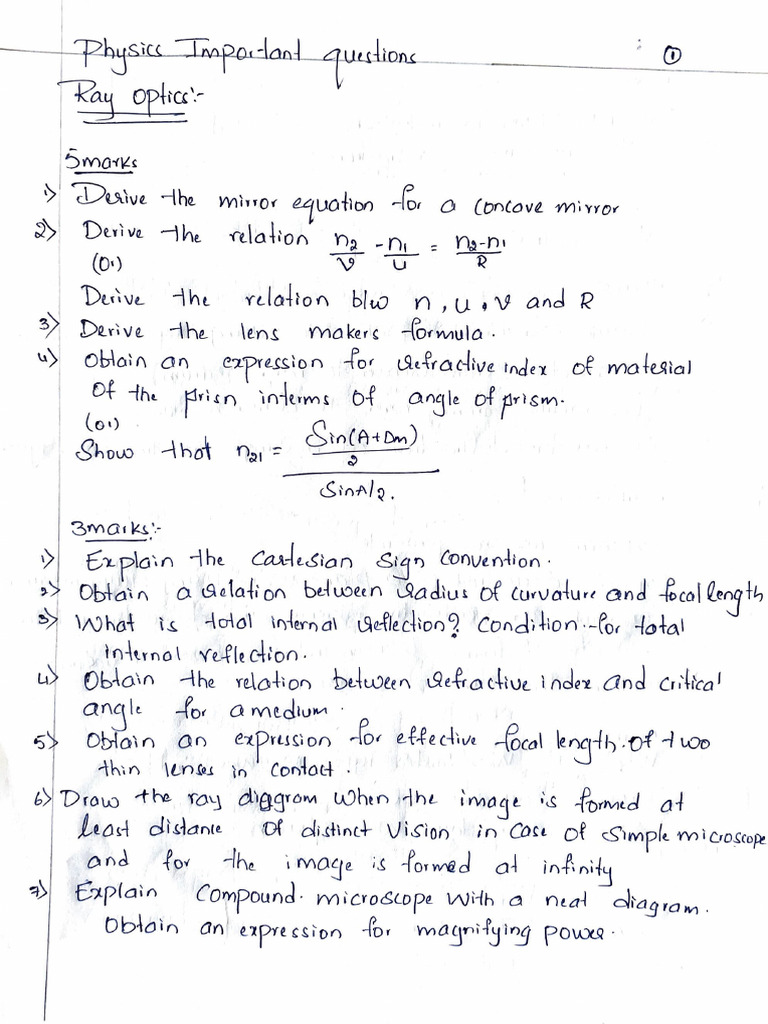 Physics Important questions
①
Ray optics:-
5marks
1) Derive the mirror equation for a concave mirror
2) Derive the relation n₂/v - n₁/u = n₂-n₁/R
(or)
Derive the relation b/w n, u, v and R
3) Derive the lens makers formula.
4) Obtain an expression for refractive index of material
Of the prisn interms Of angle of prism.
(or)
Show that n₂₁ = Sin(A+Dm)/2 / SinA/2.
3marks:-
1) Explain the Cartesian Sign Convention.
2) Obtain a relation between radius of curvature and focal length
3) What is total internal reflection? Condition for total
internal reflection.
4) Obtain the relation between refractive index and critical
angle for a medium.
5) Obtain an expression for effective focal length. Of two
thin lenses in contact.
6) Draw the ray diagram when the image is formed at
least distance Of distinct Vision in case of Simple microscope
and for the image is formed at infinity
7) Explain Compound. microscope with a neat diagram.
Obtain an expression for magnifying power.